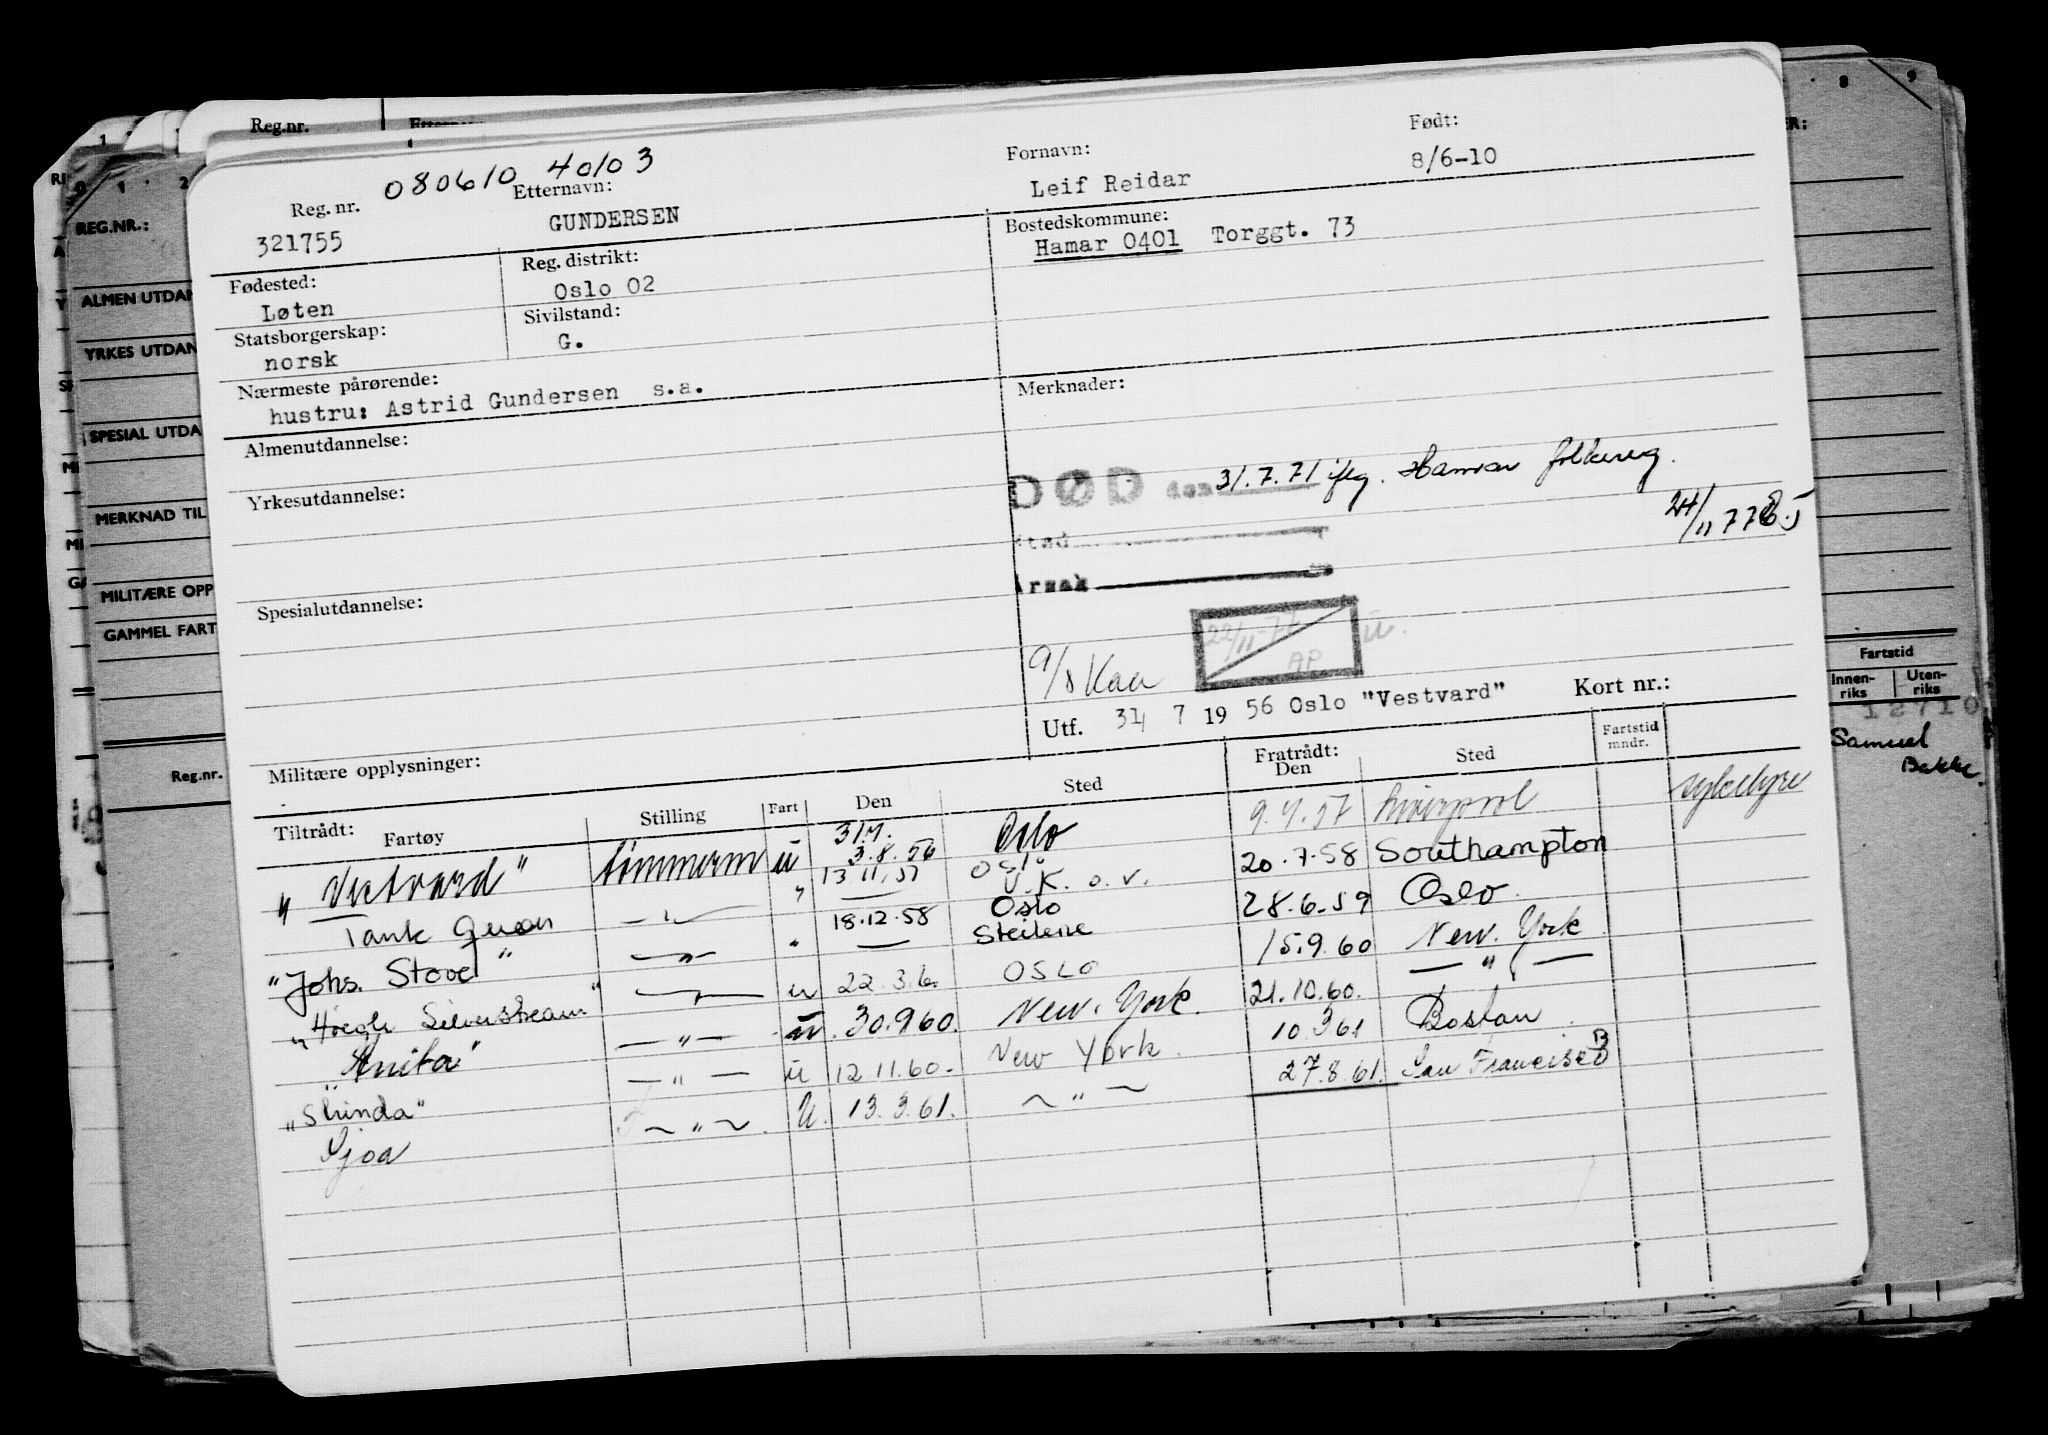 Reg.nr.
1
8 9
080610 40103
Reg. nr. Etternavn: Fornavn: Født:
321755 GUNDERSEN Leif Reidar 8/6-10
Fødested: Reg. distrikt: Bostedskommune:
Løten Oslo 02 Hamar 0401 Torggt. 73
Statsborgerskap: Sivilstand:
norsk G.
Nærmeste pårørende: Merknader:
hustru: Astrid Gundersen s.a.
Almenutdannelse:
DØD den 31.7.71 iflg. Hamar folkereg.
Yrkesutdannelse:
24/11 77
Sted
Årsak
Spesialutdannelse:
22/11-77
AP
9/8 Kaa
Utf. 31 7 19 56 Oslo "Vestvard" Kort nr.:
Militære opplysninger:
Tiltrådt: Fartøy Stilling Fart Den Sted Fratrådt: Den Sted Fartstid mndr.
"Vestvard" tømmerm u 31/7. 3.8.56 Oslo 9.7.57 Liverpool
Tank Queen — " — " 13.11.57 Oslo U.K. o.v. 20.7.58 Southampton
"Johs. Stove" — " — " 18.12.58 Oslo Steilene 28.6.59 Oslo.
"Høegh Silverstream" — " — u 22.3.6. OSLO 15.9.60 New. York
"Anita" — " — u. 30.9.60. New. York. 21.10.60. — " —
"Slinda" — " — u 12.11.60. New York. 10.3.61 Boston.
Gjoa — " — . U. 13.3.61. — " — 27.8.61. San Francisco
REG.NR.:
ALMEN UTDAN
YRKES UTDAN
SPESIAL UTDA
MERKNAD TIL
MILITÆRE OPP
GAMMEL FART
Reg.nr.
Fartstid
Innenriks Utenriks
12710
Samuel
Bakke.